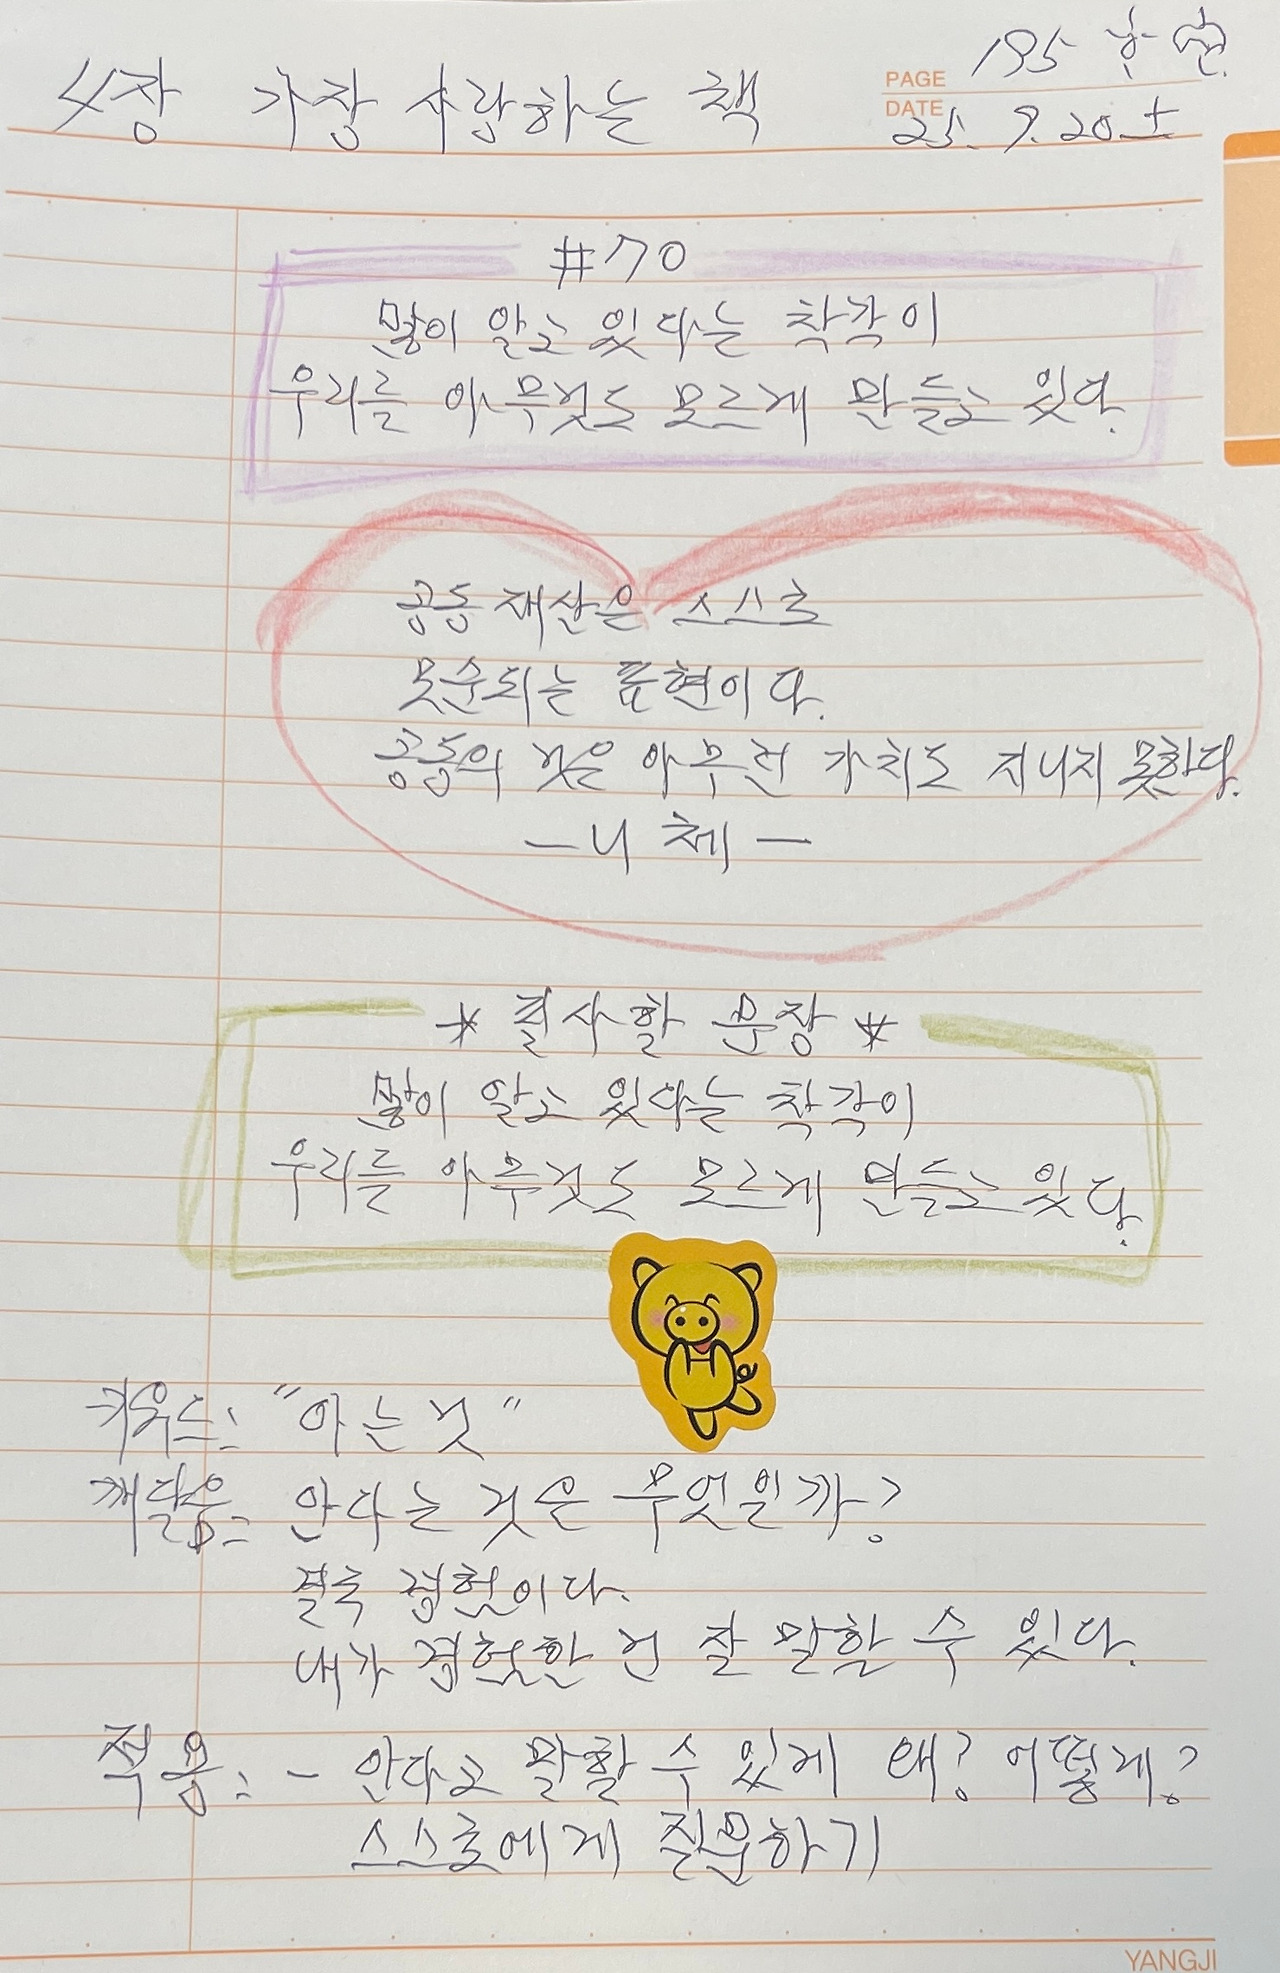 4장 가장 사랑하는 책
PAGE 195
DATE 25. 9. 20. 土
#70
많이 알고 있다는 착각이
우리를 아무것도 모르게 만들고 있다.
공동 재산은 스스로
모순되는 표현이다.
공동의 것은 아무런 가치도 지니지 못한다.
- 니체 -
* 필사할 문장 *
많이 알고 있다는 착각이
우리를 아무것도 모르게 만들고 있다.
키워드: "아는 것"
깨달음: 안다는 것은 무엇일까?
결국 경험이다.
내가 경험한 건 잘 말할 수 있다.
적용: - 안다고 말할 수 있게 왜? 어떻게?
스스로에게 질문하기
YANGJI